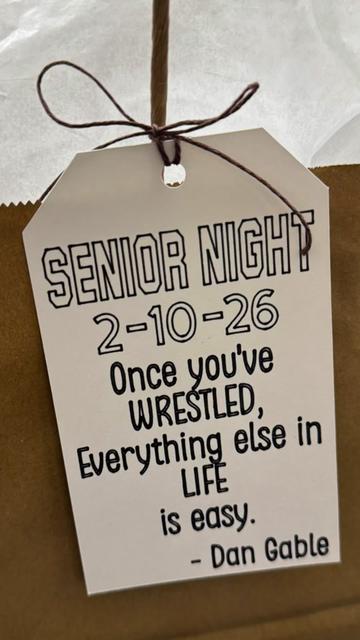 SENIOR NIGHT
2-10-26
Once you've
WRESTLED,
Everything else in
LIFE
is easy.
- Dan Gable